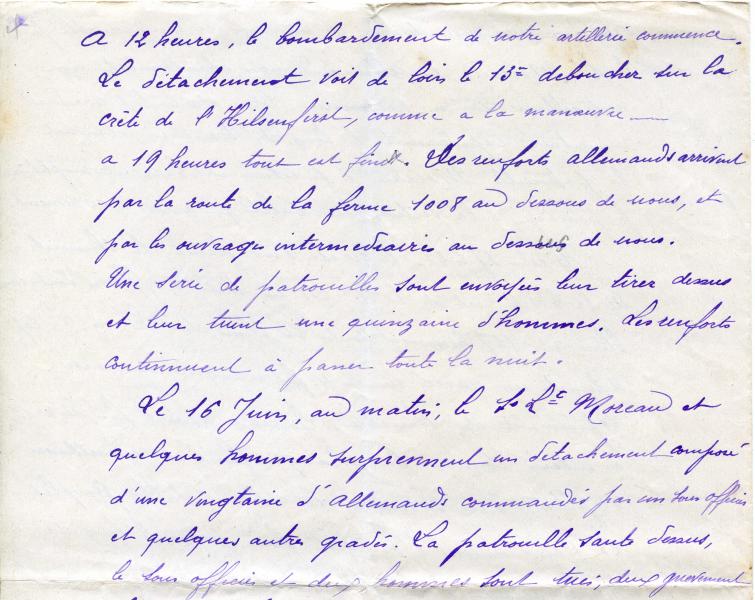 A 12 heures, le bombardement de notre artillerie commence.
Le détachement voit de loin le 13e deboucher sur la
crête de l'Hilsenfirst, comme a la manœuvre —
a 19 heures tout est fini. Des renforts allemands arrivent
par la route de la ferme 1008 au dessous de nous, et
par les ouvrages intermediaires au dessus de nous.
Une série de patrouilles sont envoyées leur tirer dessus
et leur tuent une quinzaine d'hommes. Les renforts
continuent à passer toute la nuit.
Le 16 Juin, au matin, le So Lt Moreau et
quelques hommes surprennent un detachement composé
d'une vingtaine d'allemands commandés par un sous officier
et quelques autres gradés. La patrouille saute dessus,
le sous officier et deux hommes sont tués, deux grièvement